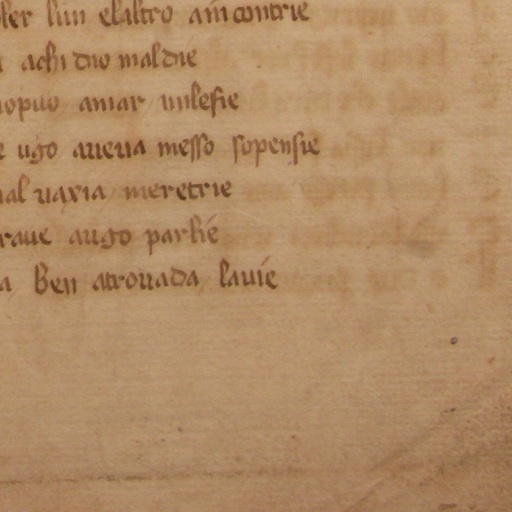 oler lun elaltro ain contrie
achi duo mal die
opuo amar unlefie
ugo aueua messo sopensie
al vaxia meretrie
raue augo parlie
a ben atrouada lauie